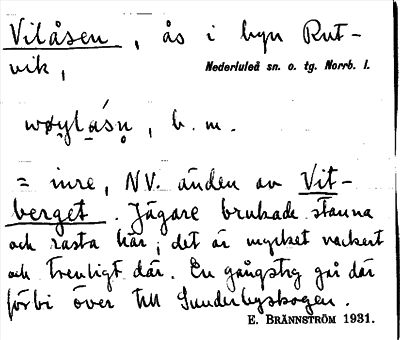 Vilåsen, ås i byn Rut-
vik,
Nederluleå sn. o. tg. Norrb. l.
b. m.
= inre, NV. änden av Vit-
berget. Jägare brukade stanna
och rasta här, det är mycket vackert
och trevligt där. En gångstig går där
förbi över till Sunderbyskogen.
E. BRÄNNSTRÖM 1931.